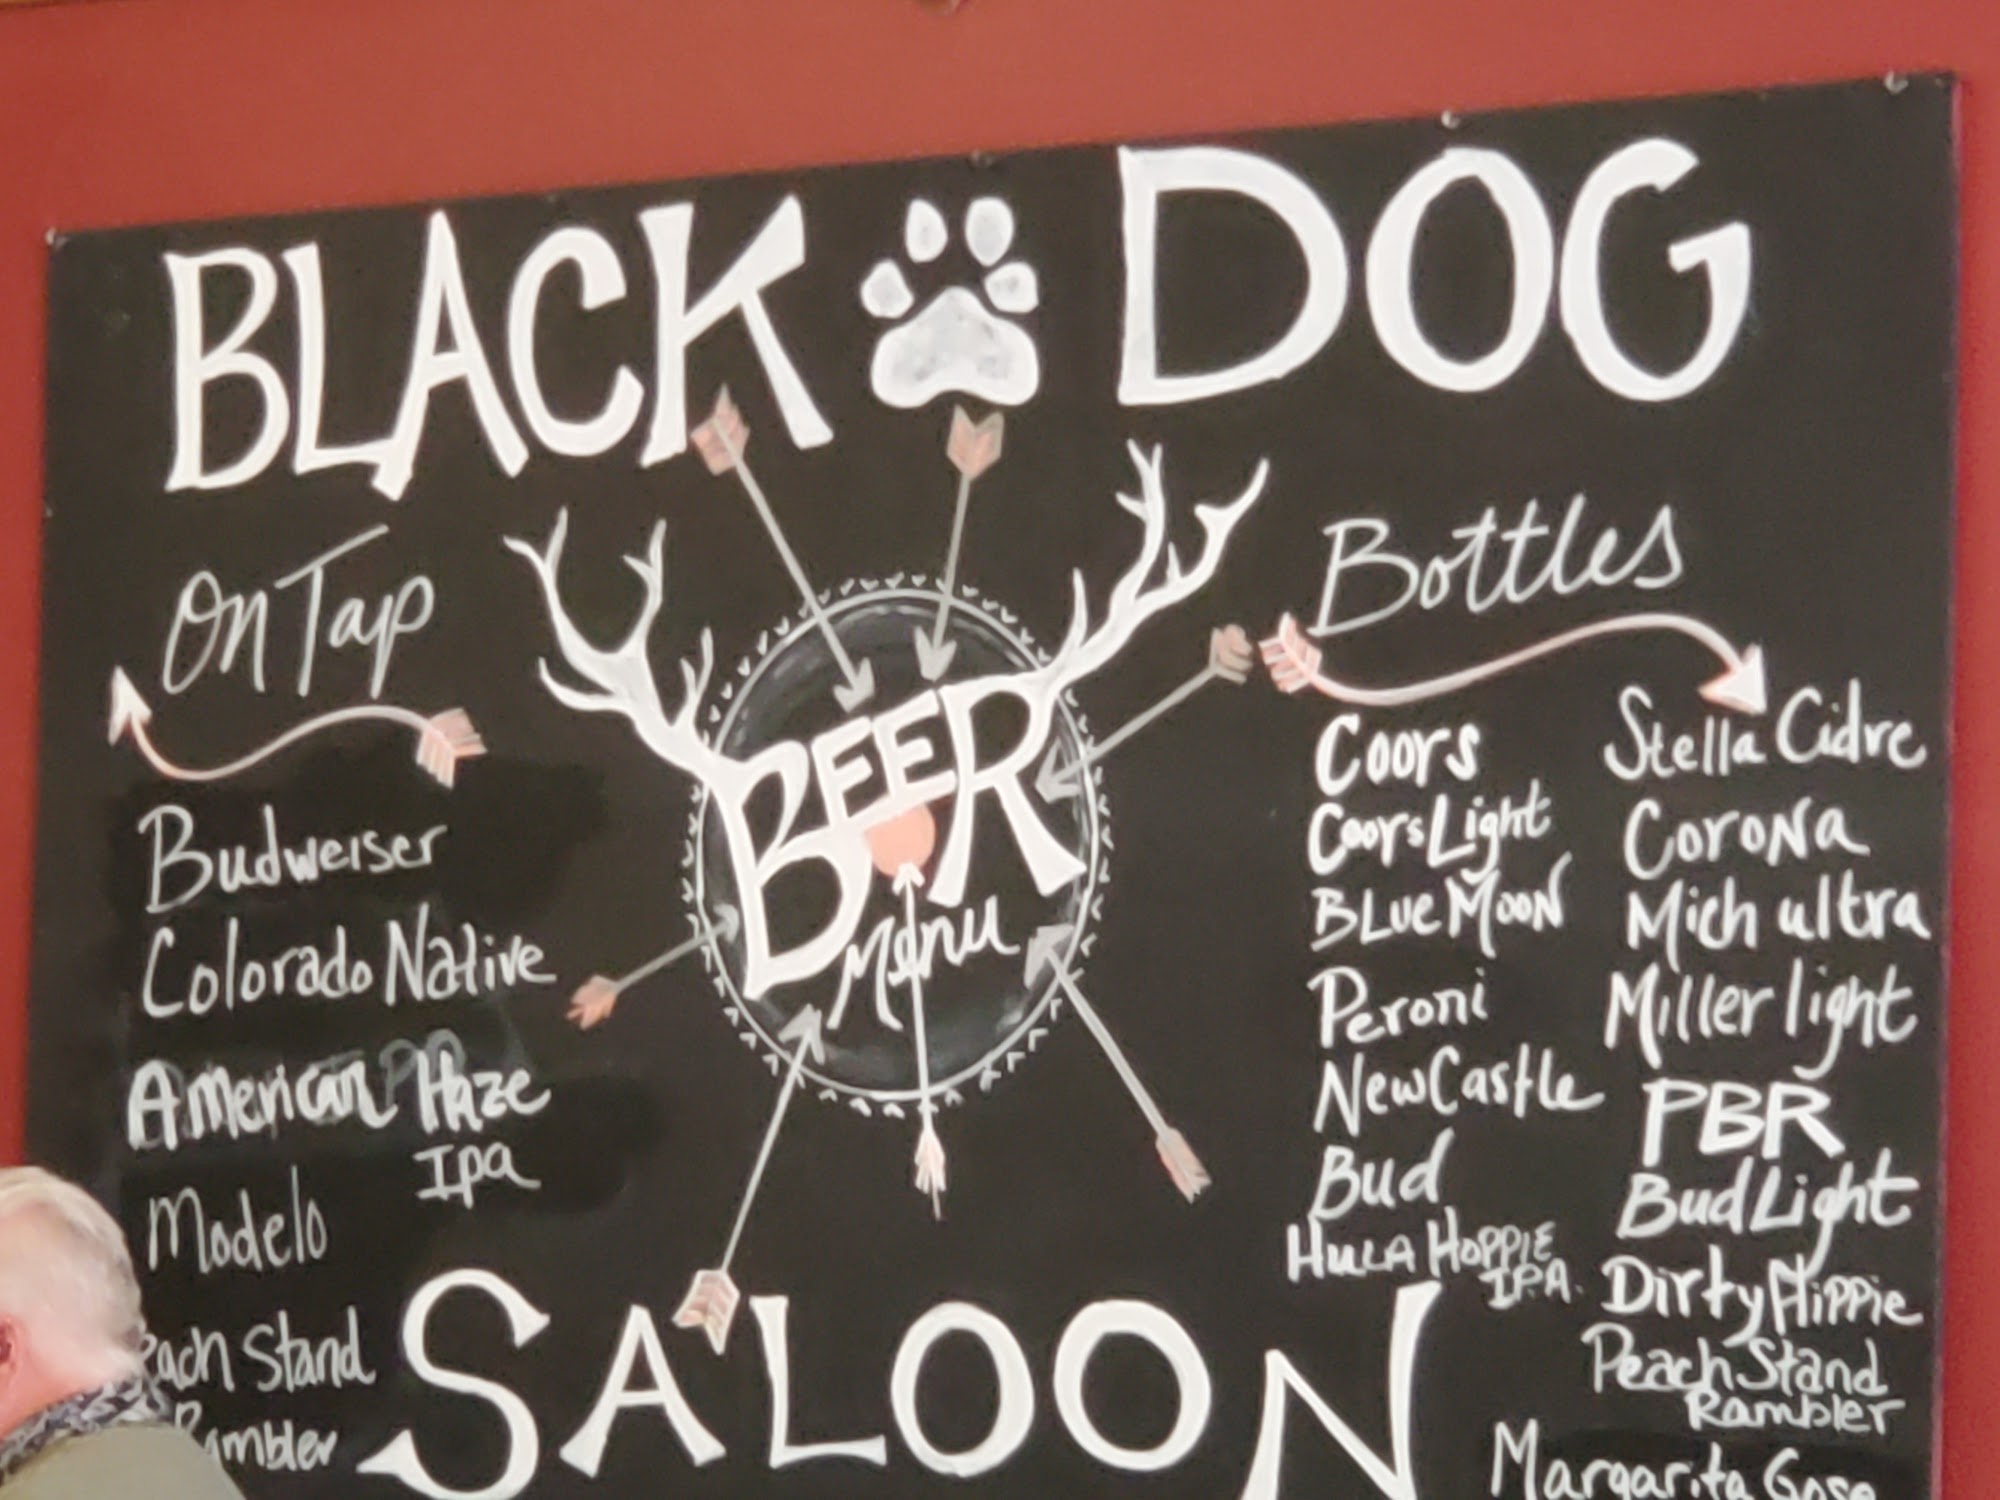 BLACK DOG
On Tap
Budweiser
Colorado Native
American Haze
Ipa
Modelo
each Stand
Rambler
BEER
Menu
Bottles
Coors
Coors Light
Blue Moon
Peroni
NewCastle
Bud
Hula Hoppie
I.P.A.
Stella Cidre
Corona
Mich ultra
Miller light
PBR
Bud Light
Dirty Hippie
Peach Stand
Rambler
Margarita Gose
SALOON